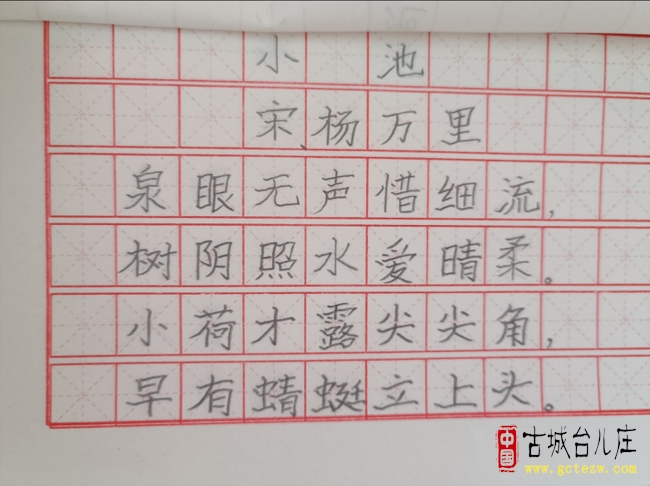 小池
宋、杨万里
泉眼无声惜细流，
树阴照水爱晴柔。
小荷才露尖尖角，
早有蜻蜓立上头。
中国 古城台儿庄
www.gctezw.com